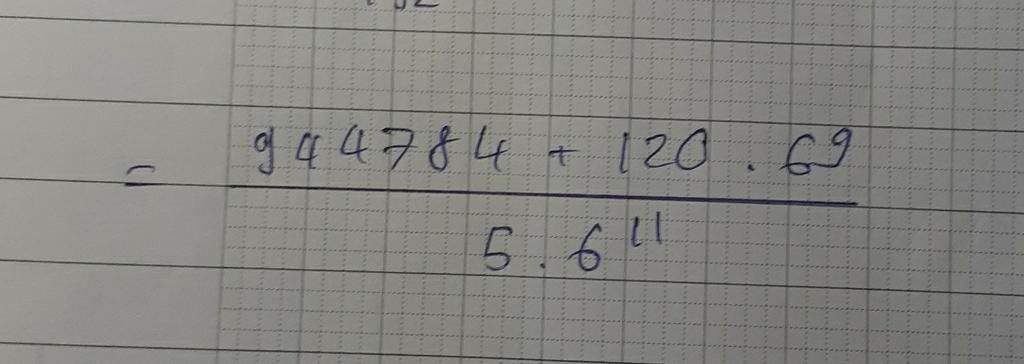 = 944784 + 120 . 69
5 . 6¹¹